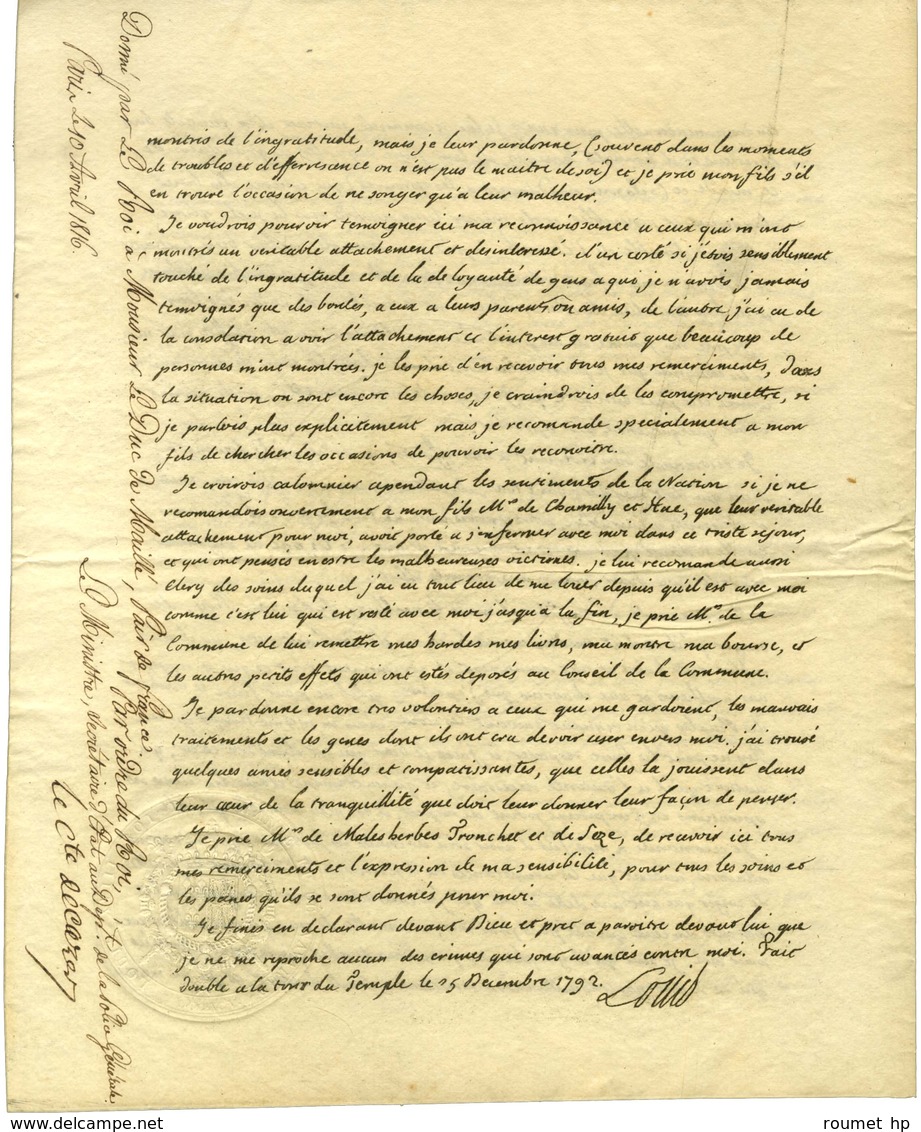 montrés de l'ingratitude, mais je leur pardonne, (souvent dans les moments
de troubles et d'effervescence on n'est pas le maitre de soi) et je prie mon fils s'il
en trouve l'occasion de ne songer qu'a leur malheur.
Je voudrois pouvoir temoigner ici ma reconnoissance a ceux qui m'ont
montrés un veritable attachement et desinteressé. d'un costé si j'etois sensiblement
touché de l'ingratitude et de la deloyauté de gens a qui je n'avois jamais
temoignés que des bontés, a eux a leurs parents ou amis, de l'autre j'ai eu de
la consolation a voir l'attachement et l'interest gratuit que beaucoup de
personnes m'ont montrés. je les prie d'en recevoir tous mes remerciments, dans
la situation ou sont encore les choses, je craindrois de les compromettre, si
je parlois plus explicitement mais je recomande specialement a mon
fils de chercher les occasions de pouvoir les reconoitre.
Je croirois calomnier cependant les sentiments de la Nation si je ne
recomandois ouvertement a mon fils Mrs de Chamilly et Hue, que leur veritable
attachement pour moi, avoit porté a s'enfermer avec moi dans ce triste sejour,
et qui ont pensés en estre les malheureuses victimes. je lui recomande aussi
Clery des soins duquel j'ai eu tout lieu de me louer depuis qu'il est avec moi
comme c'est lui qui est resté avec moi jusqu'a la fin, je prie Mrs de la
Commune de lui remettre mes hardes mes livres, ma montre ma bourse, et
les autres petits effets qui ont estés deposés au Conseil de la Commune.
Je pardonne encore tres volontiers a ceux qui me gardoient, les mauvais
traitements et les genes dont ils ont cru devoir user envers moi. j'ai trouvé
quelques ames sensibles et compatissantes, que celles la jouissent dans
leur cœur de la tranquillité que doit leur donner leur façon de penser.
Je prie Mrs de Malesherbes Tronchet et de Seze, de recevoir ici tous
mes remerciments et l'expression de ma sensibilité, pour tous les soins et
les peines qu'ils se sont donnés pour moi.
Je finis en declarant devant Dieu et pret a paroitre devant lui que
je ne me reproche aucun des crimes qui sont avancés contre moi. Fait
double a la tour du Temple le 25 Decembre 1792.
Louis
Donné par Le Roi à Monsieur Le Duc de Maillé, Pair de france.
Paris Le 10 Avril 1816.
Par ordre du Roi,
Le Ministre, Secretaire d'Etat au Dépt. de la Police Générale.
le Cte décazes
roumet hp